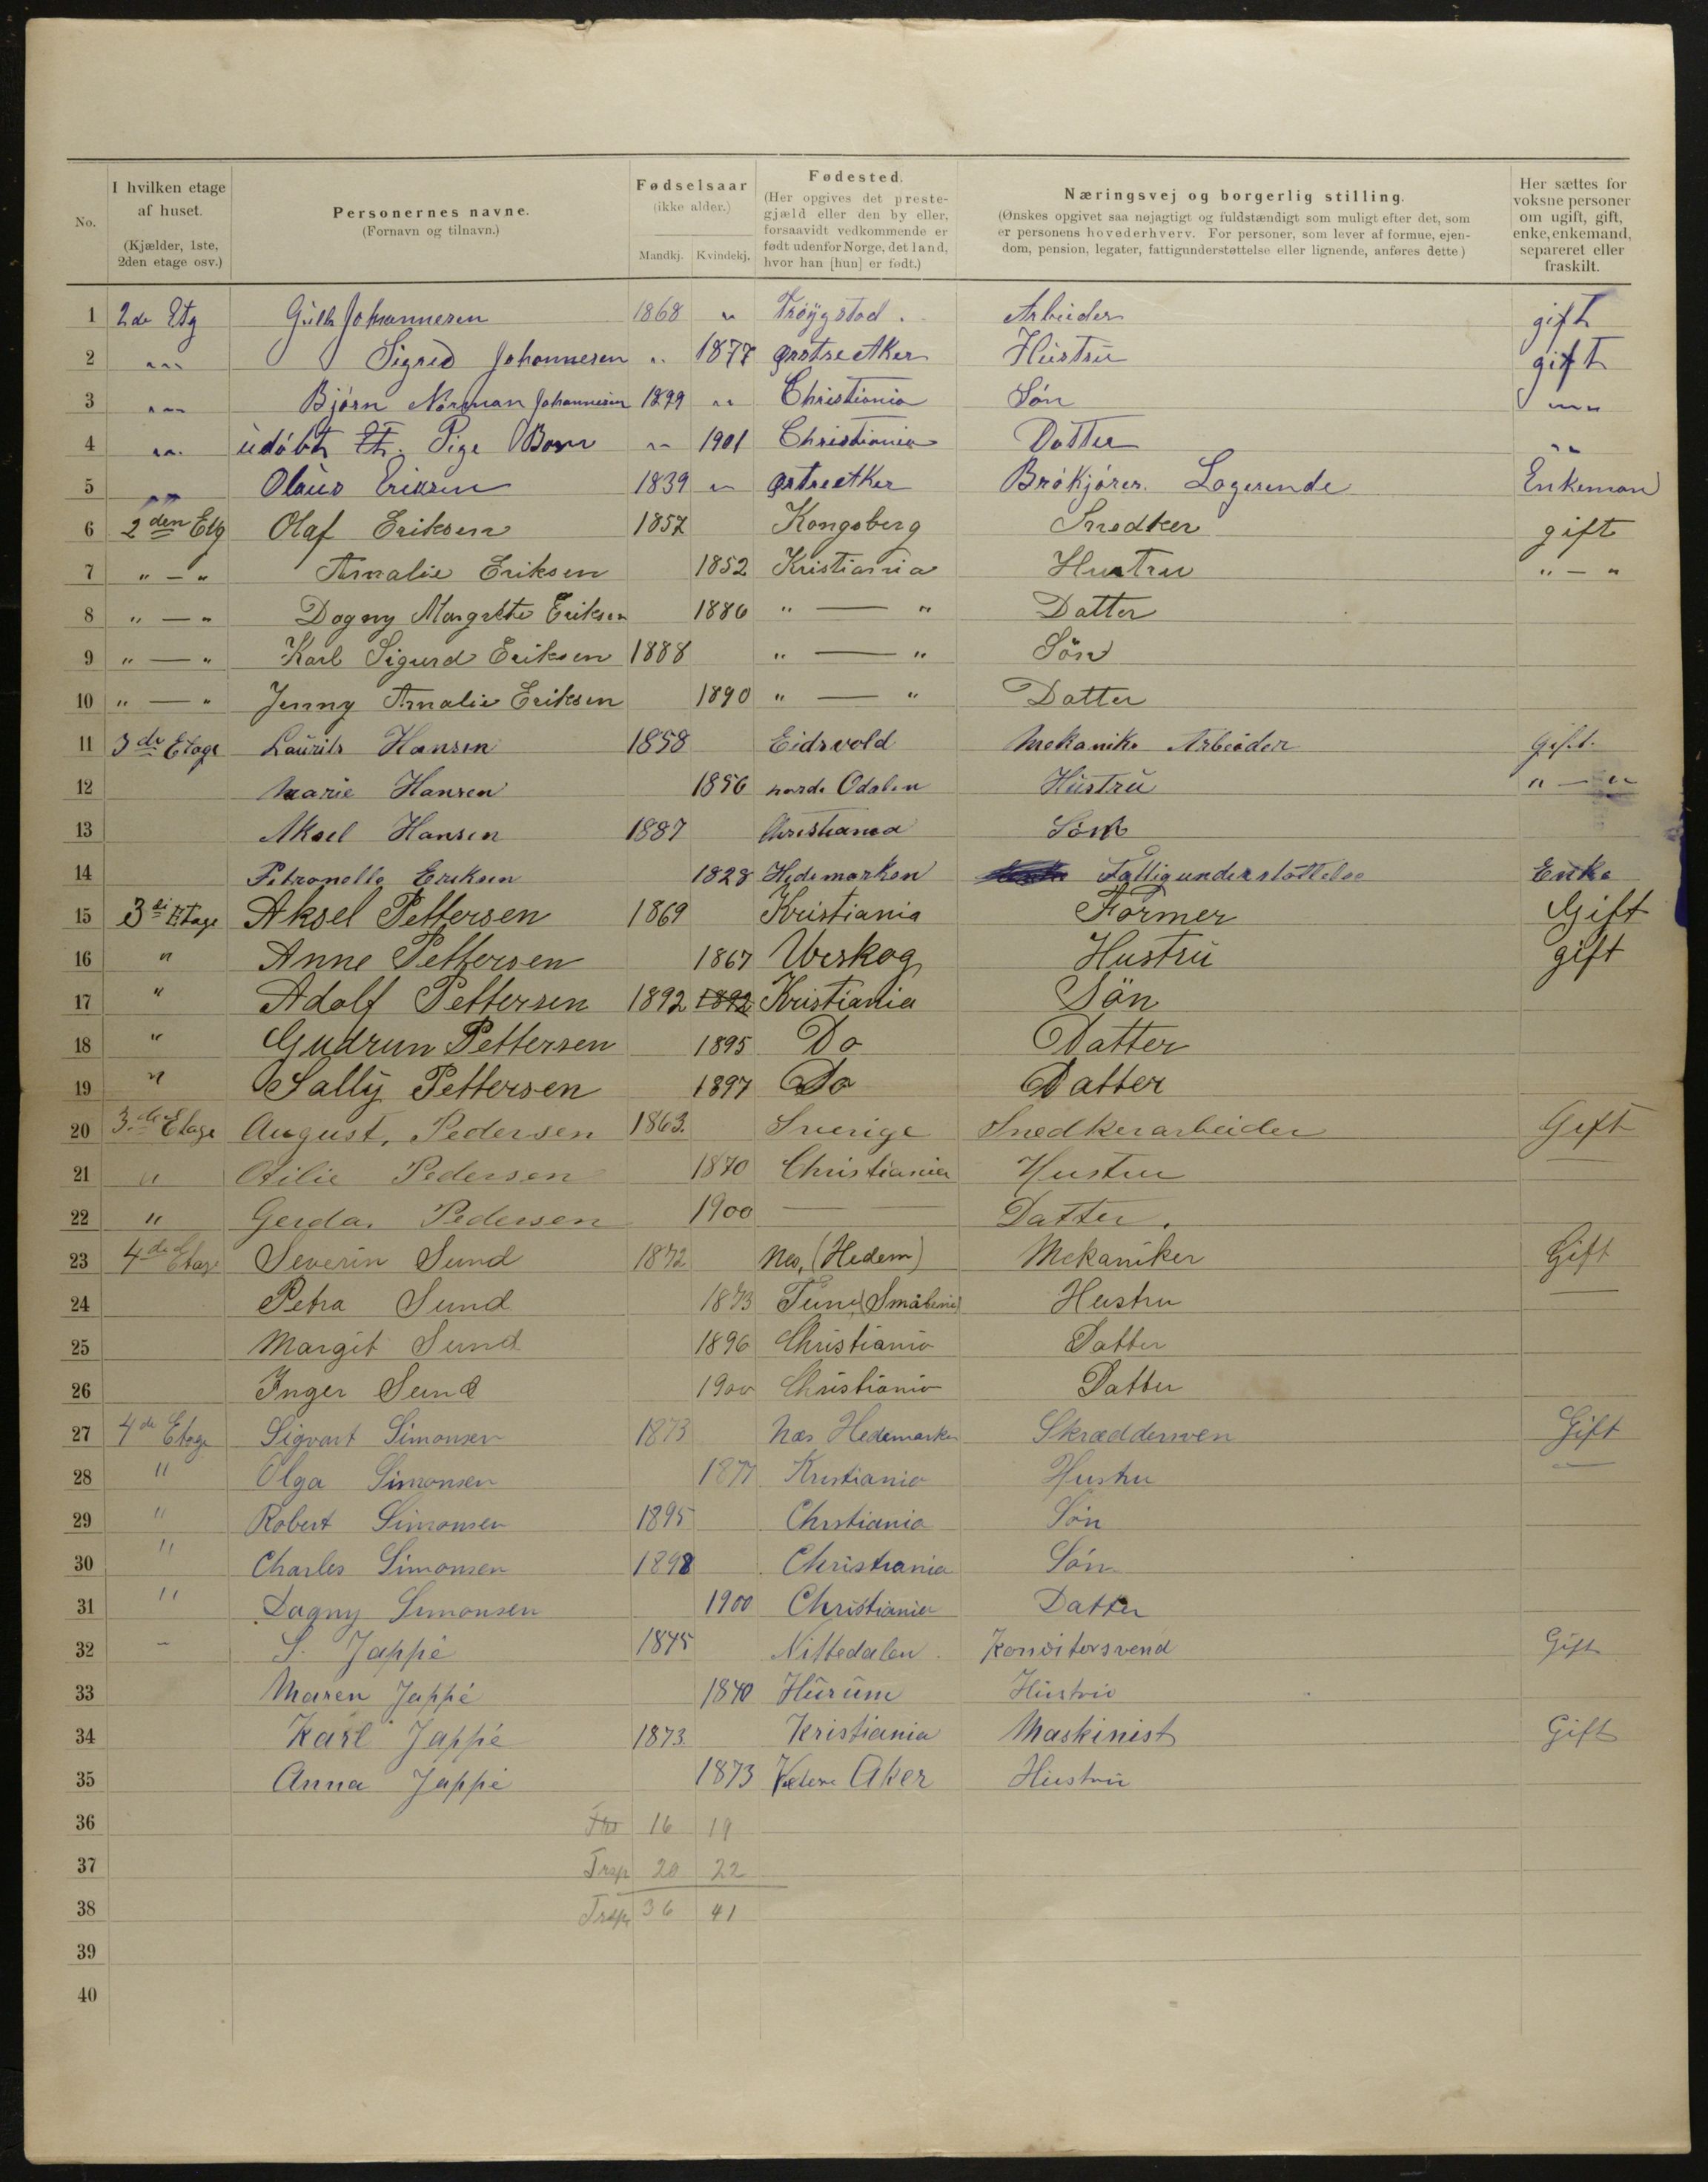 No. I hvilken etage af huset. (Kjælder, 1ste, 2den etage osv.) Personernes navne. (Fornavn og tilnavn.) Fødselsaar (ikke alder.) Mandkj. Kvindekj. Fødested. (Her opgives det prestegjæld eller den by eller, forsaavidt vedkommende er født udenfor Norge, det land, hvor han [hun] er født.) Næringsvej og borgerlig stilling. (Ønskes opgivet saa nøjagtigt og fuldstændigt som muligt efter det, som er personens hovederhverv. For personer, som lever af formue, ejendom, pension, legater, fattigunderstøttelse eller lignende, anføres dette) Her sættes for voksne personer om ugift, gift, enke, enkemand, separeret eller fraskilt.
1 2de Etg Johannesen 1868 " Trøygstad. Arbeider gift
2 " Sigrid Johannesen " 1877 Østre Aker Hustru gift
3 " Bjørn Norman Johannesen 1899 " Christiania Søn "
4 " udøbt Pige Barn " 1901 Christiania Datter "
5 " Olaus Eriksen 1839 " Østre Aker Brøkjører. Logerende Enkeman
6 2den Etg Olaf Eriksen 1857 Kongsberg Snedker gift
7 " — " Amalie Eriksen 1852 Kristiania Hustru " — "
8 " — " Dagny Margrethe Eriksen 1886 " — " Datter
9 " — " Karl Sigurd Eriksen 1888 " — " Søn
10 " — " Jenny Amalie Eriksen 1890 " — " Datter
11 3de Etage Laurits Hansen 1858 Eidsvold Mekaniks Arbeider Gift.
12 Marie Hansen 1856 nordr Odalen Hustru " — "
13 Aksel Hansen 1887 Christiania Søn
14 Petronelle Eriksen 1828 Hedemarken Fattigunderstøttelse Enke
15 3di Etage Aksel Pettersen 1869 Kristiania Former Gift
16 " Anne Pettersen 1867 Urskog Hustru gift
17 " Adolf Pettersen 1892 1892 Kristiania Søn
18 " Gudrun Pettersen 1895 Do Datter
19 " Sally Pettersen 1897 Do Datter
20 3.de Etage August, Pedersen 1863. Sverige Snedkerarbeider Gift
21 " Otilie Pedersen 1870 Christiania Hustru —
22 " Gerda. Pedersen 1900 — — Datter.
23 4de Etage Severin Sund 1872 Nes, (Hedem) Mekaniker Gift
24 Petra Sund 1873 Tune, (Smålenene) Hustru —
25 Margit Sund 1896 Christiania Datter
26 Inger Sund 1900 Christiania Datter
27 4de Etage Sigvart Simonsen 1873 Næs Hedemarken Skræddersven Gift
28 " Olga Simonsen 1877 Kristiania Hustru —
29 " Robert Simonsen 1895 Chrstiania Søn
30 " Charles Simonsen 1898 Christiania Søn
31 " Dagny Simonsen 1900 Christiania Datter
32 — S. Jappé 1845 Nittedalen Konditorsvend Gift
33 Maren Jappé 1840 Hurum Hustru
34 Karl Jappé 1873 Kristiania Maskinist Gift
35 Anna Jappé 1873 Vestre Aker Hustru
36 16 19
37 Trsp 20 22
38 Trsp 36 41
39
40